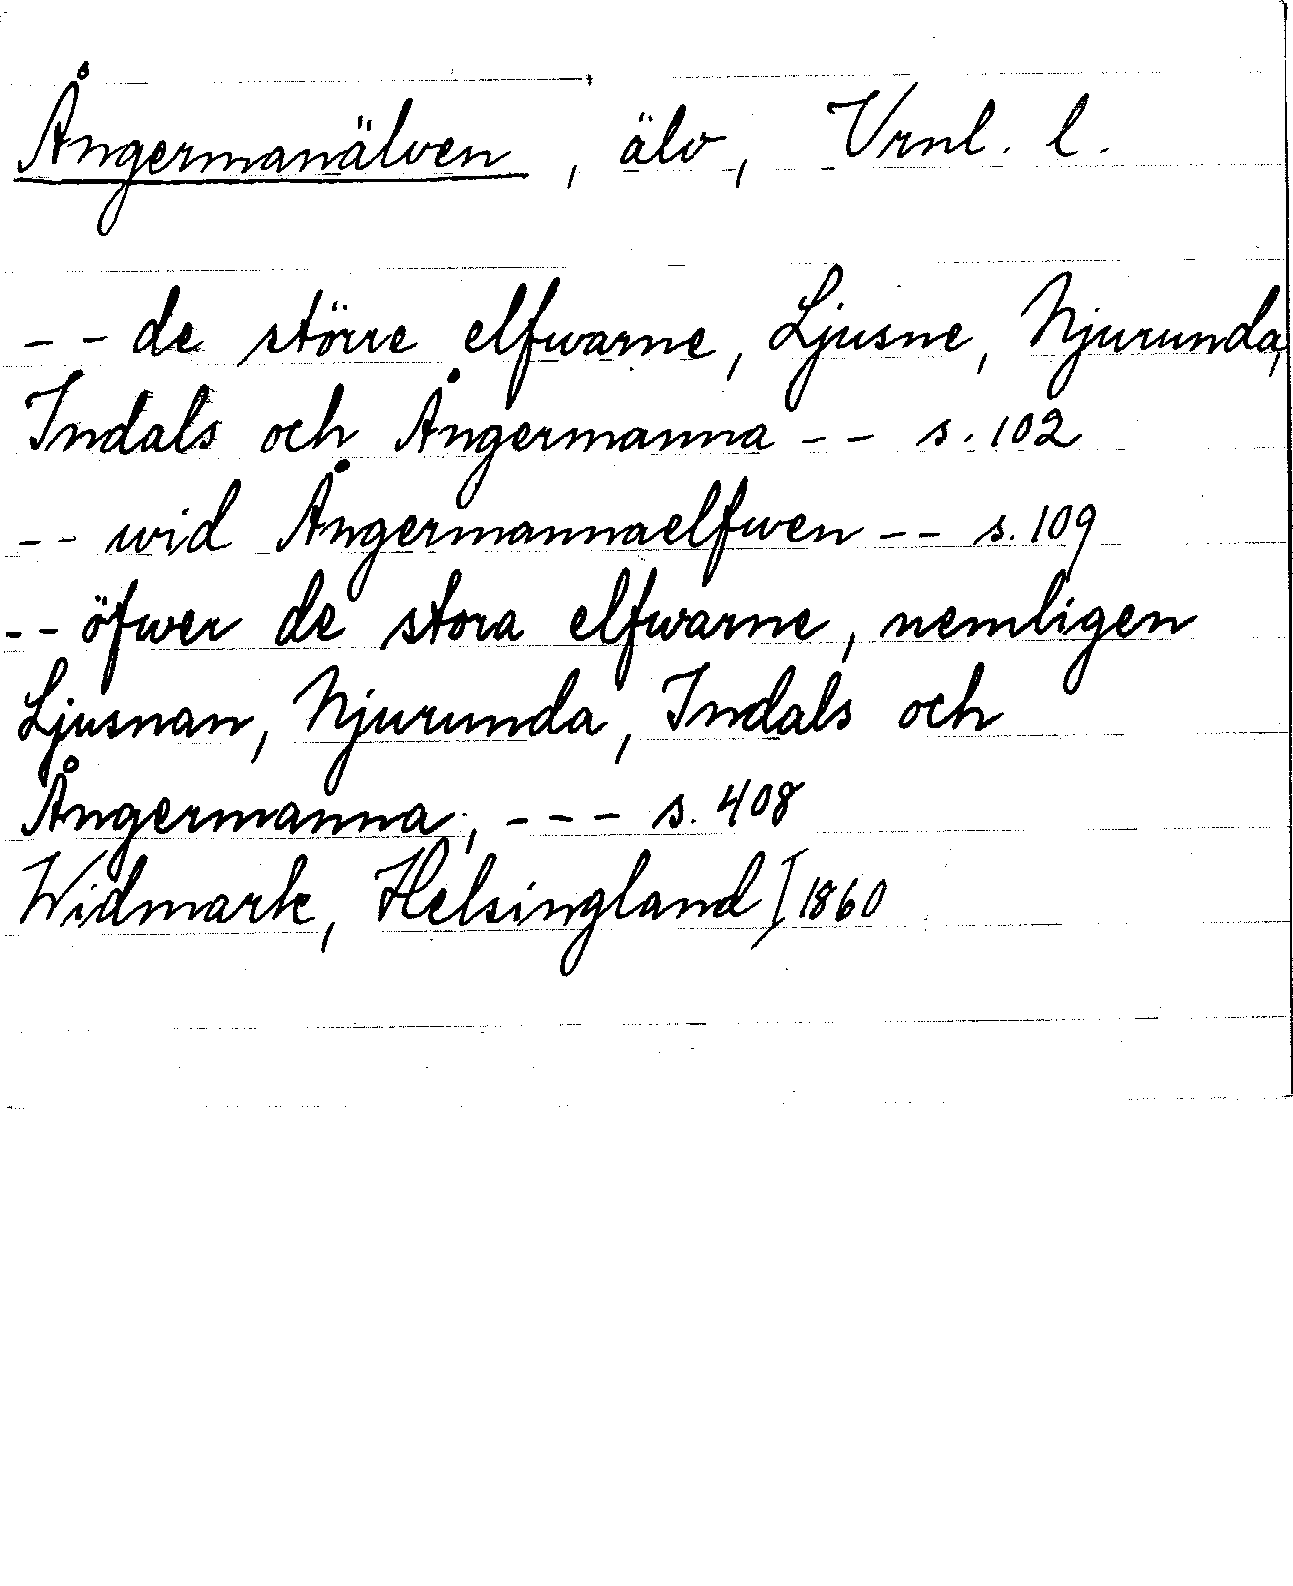 Ångermanälven, älv, Vrnl. l.
-- de större elfwarne, Ljusne, Njurunda,
Indals och Ångermanna -- s. 102
-- wid Ångermannaelfwen -- s. 109
-- öfwer de stora elfwarne, nemligen
Ljusnan, Njurunda, Indals och
Ångermanna, --- s. 408
Widmark, Helsingland I 1860